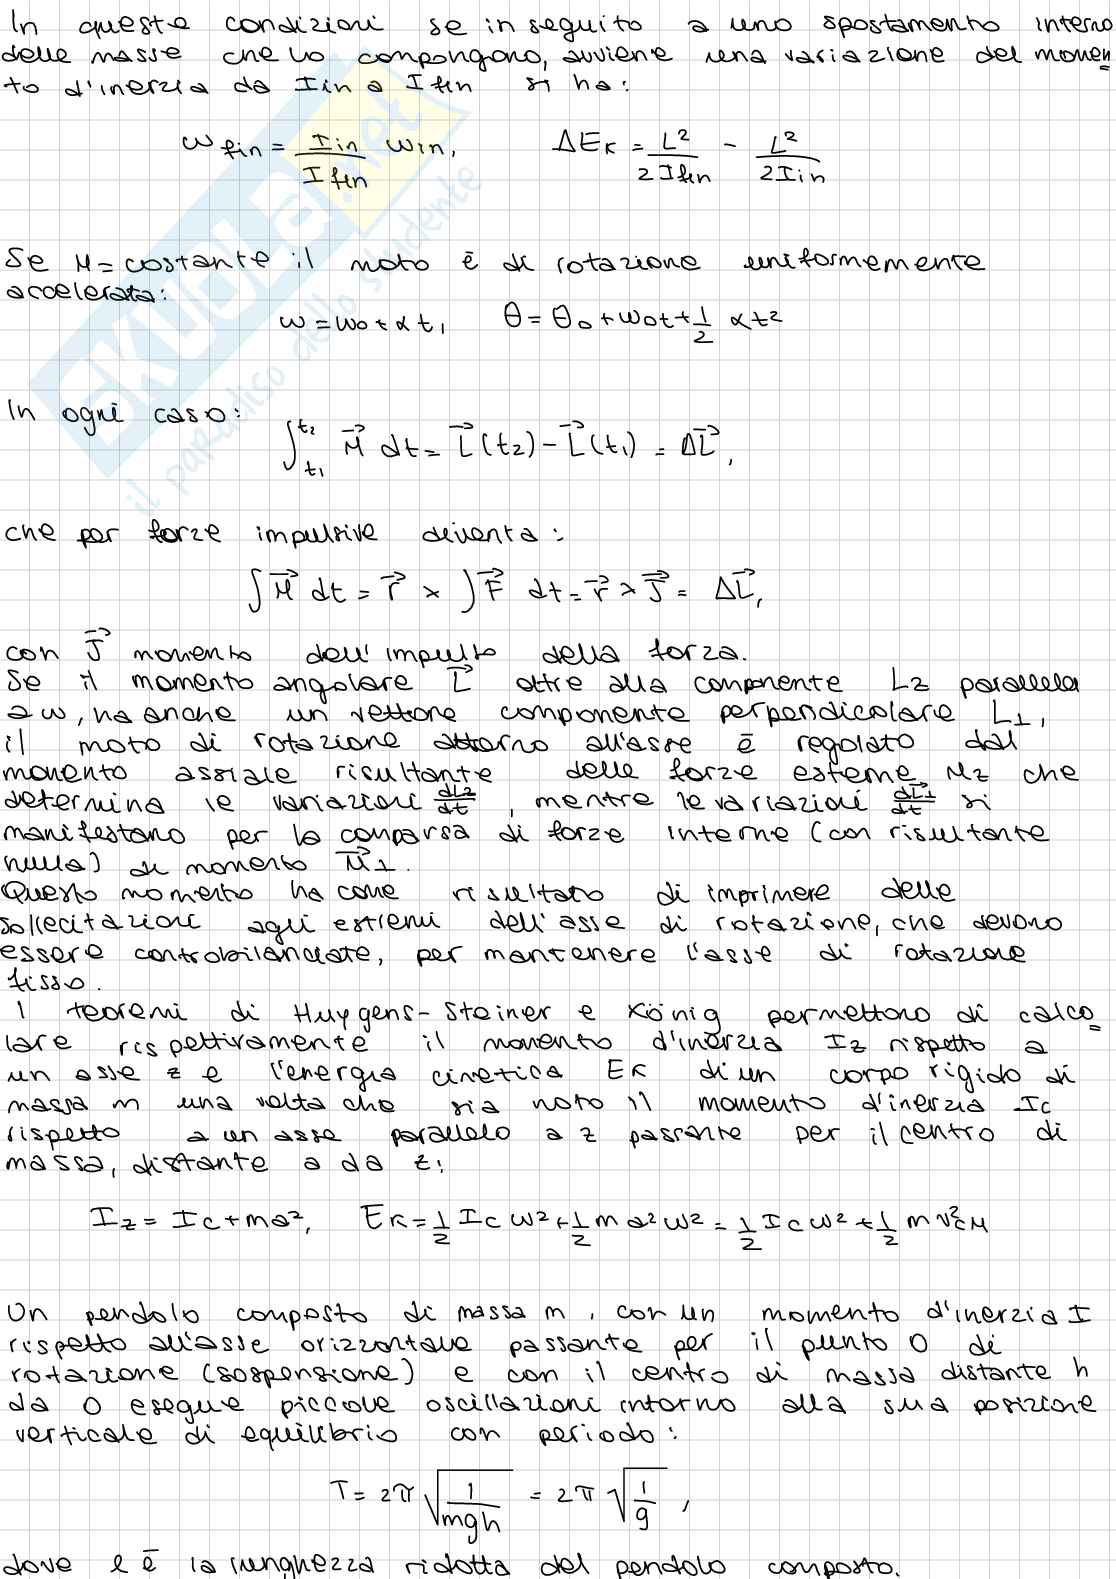 In queste condizioni se in seguito a uno spostamento interno
delle masse che lo compongono, avviene una variazione del momen-
to d'inerzia da Iin a Ifin si ha:
ωfin = Iin/Ifin ωin, ΔEK = L²/2Ifin - L²/2Iin
Se M = costante il moto è di rotazione uniformemente
accelerata:
ω = ω0 + αt, θ = θ0 + ω0t + 1/2 αt²
In ogni caso:
∫t1t2 M⃗ dt = L⃗(t2) - L⃗(t1) = ΔL⃗,
che per forze impulsive diventa:
∫M⃗ dt = r⃗ × ∫F⃗ dt = r⃗ × J⃗ = ΔL⃗,
con J⃗ momento dell'impulso della forza.
Se il momento angolare L⃗ oltre alla componente Lz parallela
a ω, ha anche un vettore componente perpendicolare L⊥,
il moto di rotazione attorno all'asse è regolato dal
momento assiale risultante delle forze esterne Mz che
determina le variazioni dLz/dt, mentre le variazioni dL⃗⊥/dt si
manifestano per la comparsa di forze interne (con risultante
nulla) di momento M⃗⊥.
Questo momento ha come risultato di imprimere delle
sollecitazioni agli estremi dell'asse di rotazione, che devono
essere controbilanciate, per mantenere l'asse di rotazione
fisso.
I teoremi di Huygens-Steiner e König permettono di calco-
lare rispettivamente il momento d'inerzia Iz rispetto a
un asse z e l'energia cinetica EK di un corpo rigido di
massa m una volta che sia noto il momento d'inerzia Ic
rispetto a un asse parallelo a z passante per il centro di
massa, distante a da z:
Iz = Ic + ma², EK = 1/2 Ic ω² + 1/2 m a² ω² = 1/2 Ic ω² + 1/2 m v²CM
Un pendolo composto di massa m, con un momento d'inerzia I
rispetto all'asse orizzontale passante per il punto O di
rotazione (sospensione) e con il centro di massa distante h
da O esegue piccole oscillazioni intorno alla sua posizione
verticale di equilibrio con periodo:
T = 2π √(I/mgh) = 2π √(l/g),
dove l è la lunghezza ridotta del pendolo composto.
SKUOLA.net
il paradiso dello studente